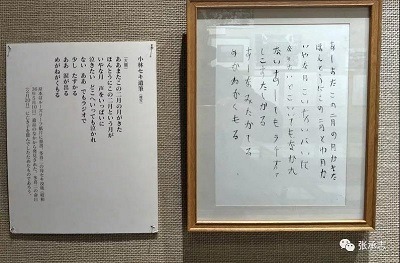 小林セキ遺筆（複写）
ああまたこの二月の月がきた
ほんとうにこの二月という月が
いやな月 声をいっぱいに
泣きたい どこへいっても泣かれ
ない ああ でもラジオで
少し たすかる
ああ 涙が出る
めがねがくもる
あーまたこの二月の月かきた
ほんとうにこの二月とゆ月か
いやな月こいをいパいに
なきたいどこいいてもなかれ
ないあーてもラチオて
しこしたしかる
あーなみたかてる
めかねかくもる
张承志